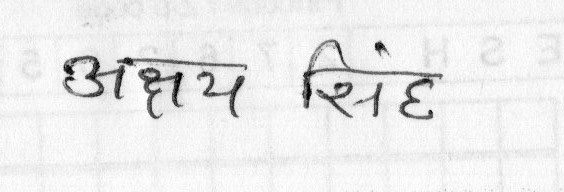 अक्षय सिंह